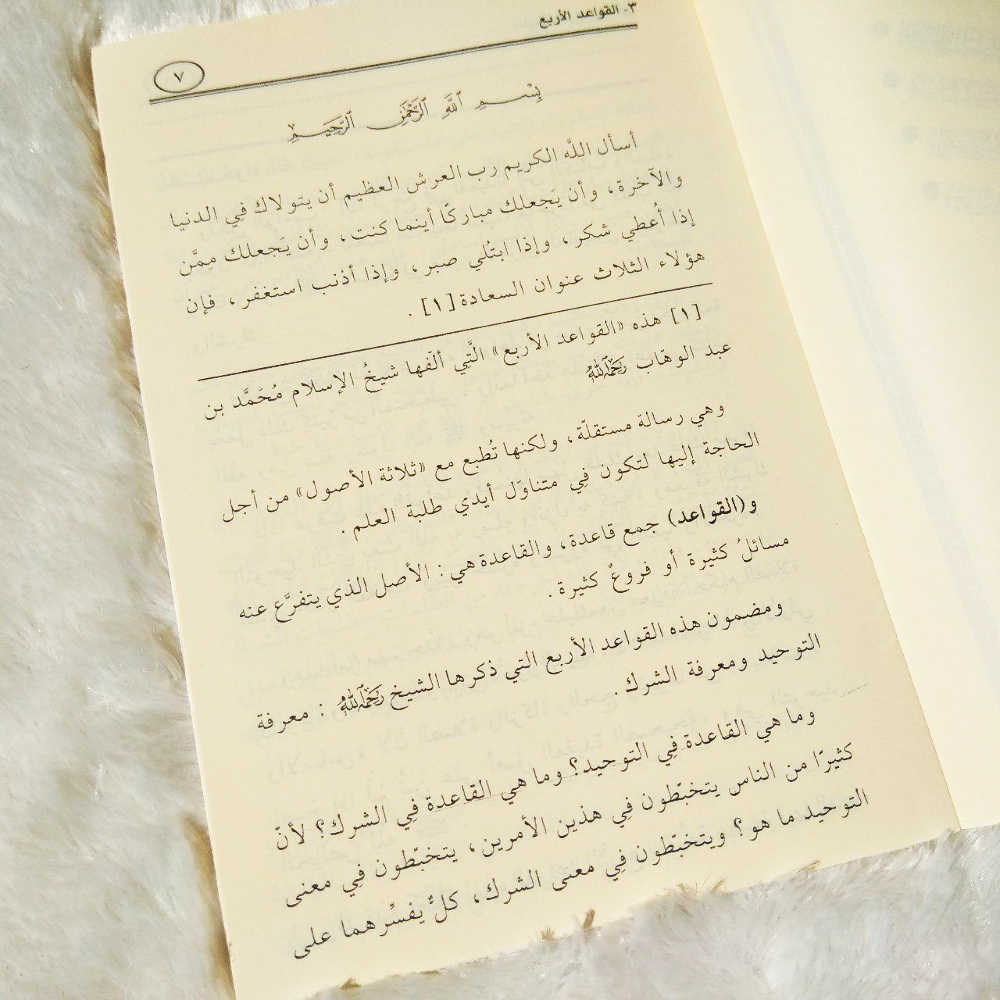 ٣- القواعد الأربع
٧
بسم الله الرحمن الرحيم
أسأل الله الكريم رب العرش العظيم أن يتولاك فِي الدنيا
والآخرة، وأن يَجعلك مباركًا أينما كنت، وأن يَجعلك مِمَّن
إذا أُعطي شكر، وإذا ابتُلي صبر، وإذا أذنب استغفر، فإن
هؤلاء الثلاث عنوان السعادة[١].
[١] هذه «القواعد الأربع» الَّتِي ألّفها شيخُ الإسلام مُحَمَّد بن
عبد الوهّاب رَحِمَهُ اللهُ
وهي رسالة مستقلّة، ولكنها تُطبع مع «ثلاثة الأصول» من أجل
الحاجة إليها لتكون فِي متناوَل أيدي طلبة العلم.
و(القواعد) جمع قاعدة، والقاعدة هي: الأصل الذي يتفرَّع عنه
مسائلُ كثيرة أو فروعٌ كثيرة.
ومضمون هذه القواعد الأربع التي ذكرها الشيخ رَحِمَهُ اللهُ : معرفة
التوحيد ومعرفة الشرك.
وما هي القاعدة فِي التوحيد؟ وما هي القاعدة فِي الشرك؟ لأنّ
كثيرًا من الناس يتخبّطون فِي هذين الأمرين، يتخبّطون فِي معنى
التوحيد ما هو؟ ويتخبّطون فِي معنى الشرك، كلٌّ يفسِّرهما على